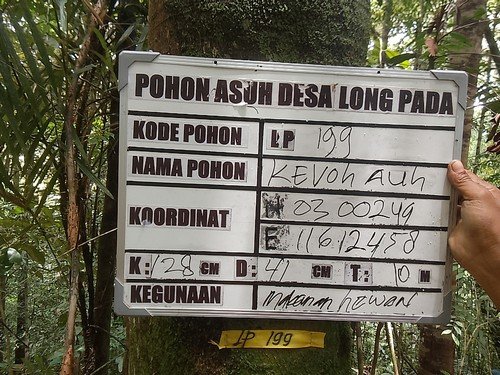 POHON ASUH DESA LONG PADA
KODE POHON LP 199
NAMA POHON KEVOH AUH
KOORDINAT N 03 00249
E 116.12458
K: 128 CM D: 41 CM T: 10 M
KEGUNAAN makanan hewan
LP 199